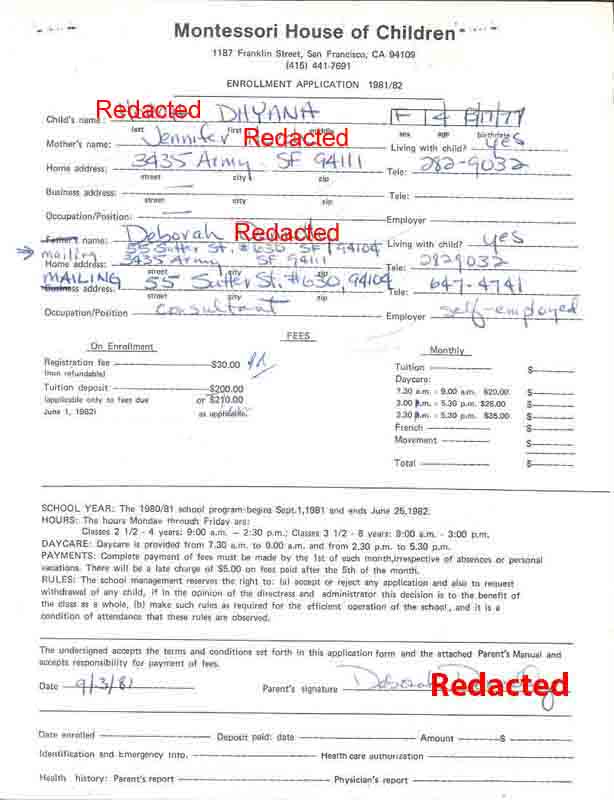 Montessori House of Children
1187 Franklin Street, San Francisco, CA 94109
(415) 441-7691
ENROLLMENT APPLICATION 1981/82
Child's name: Redacted DHYANA F 4
last first middle sex age birthdate
Mother's name: Jennifer Redacted Living with child? yes
Home address: 3435 Army SF 94111 Tele: 282-9032
street city zip
Business address: Tele:
street city zip
Occupation/Position: Employer
Father's name: Deborah Redacted Living with child? yes
mailing 55 Sutter St. #630 SF 94104
Home address: 3435 Army SF 94111 Tele: 2829032
street city zip
MAILING address: 55 Sutter St. #630, 94104 Tele: 647-4741
street city zip
Occupation/Position consultant Employer self-employed
FEES
On Enrollment Monthly
Registration fee $30.00 Tuition $
(non refundable) Daycare:
Tuition deposit $200.00 7.30 a.m. - 9.00 a.m. $20.00 $
(applicable only to fees due or $210.00 3.00 p.m. - 5.30 p.m. $25.00 $
June 1, 1982) as applicable. 2.30 p.m. - 5.30 p.m. $35.00 $
French $
Movement $
Total $
SCHOOL YEAR: The 1980/81 school program begins Sept.1,1981 and ends June 25,1982.
HOURS: The hours Monday through Friday are:
Classes 2 1/2 - 4 years: 9:00 a.m. - 2:30 p.m.; Classes 3 1/2 - 6 years: 9:00 a.m. - 3:00 p.m.
DAYCARE: Daycare is provided from 7.30 a.m. to 9.00 a.m. and from 2.30 p.m. to 5.30 p.m.
PAYMENTS: Complete payment of fees must be made by the 1st of each month,irrespective of absences or personal
vacations. There will be a late charge of $5.00 on fees paid after the 5th of the month.
RULES: The school management reserves the right to: (a) accept or reject any application and also to request
withdrawal of any child, if in the opinion of the directress and administrator this decision is to the benefit of
the class as a whole, (b) make such rules as required for the efficient operation of the school, and it is a
condition of attendance that these rules are observed.
The undersigned accepts the terms and conditions set forth in this application form and the attached Parent's Manual and
accepts responsibility for payment of fees.
Date 9/3/81 Parent's signature Deborah Redacted
Date enrolled Deposit paid: date Amount $
Identification and Emergency Info. Health care authorization
Health history: Parent's report Physician's report